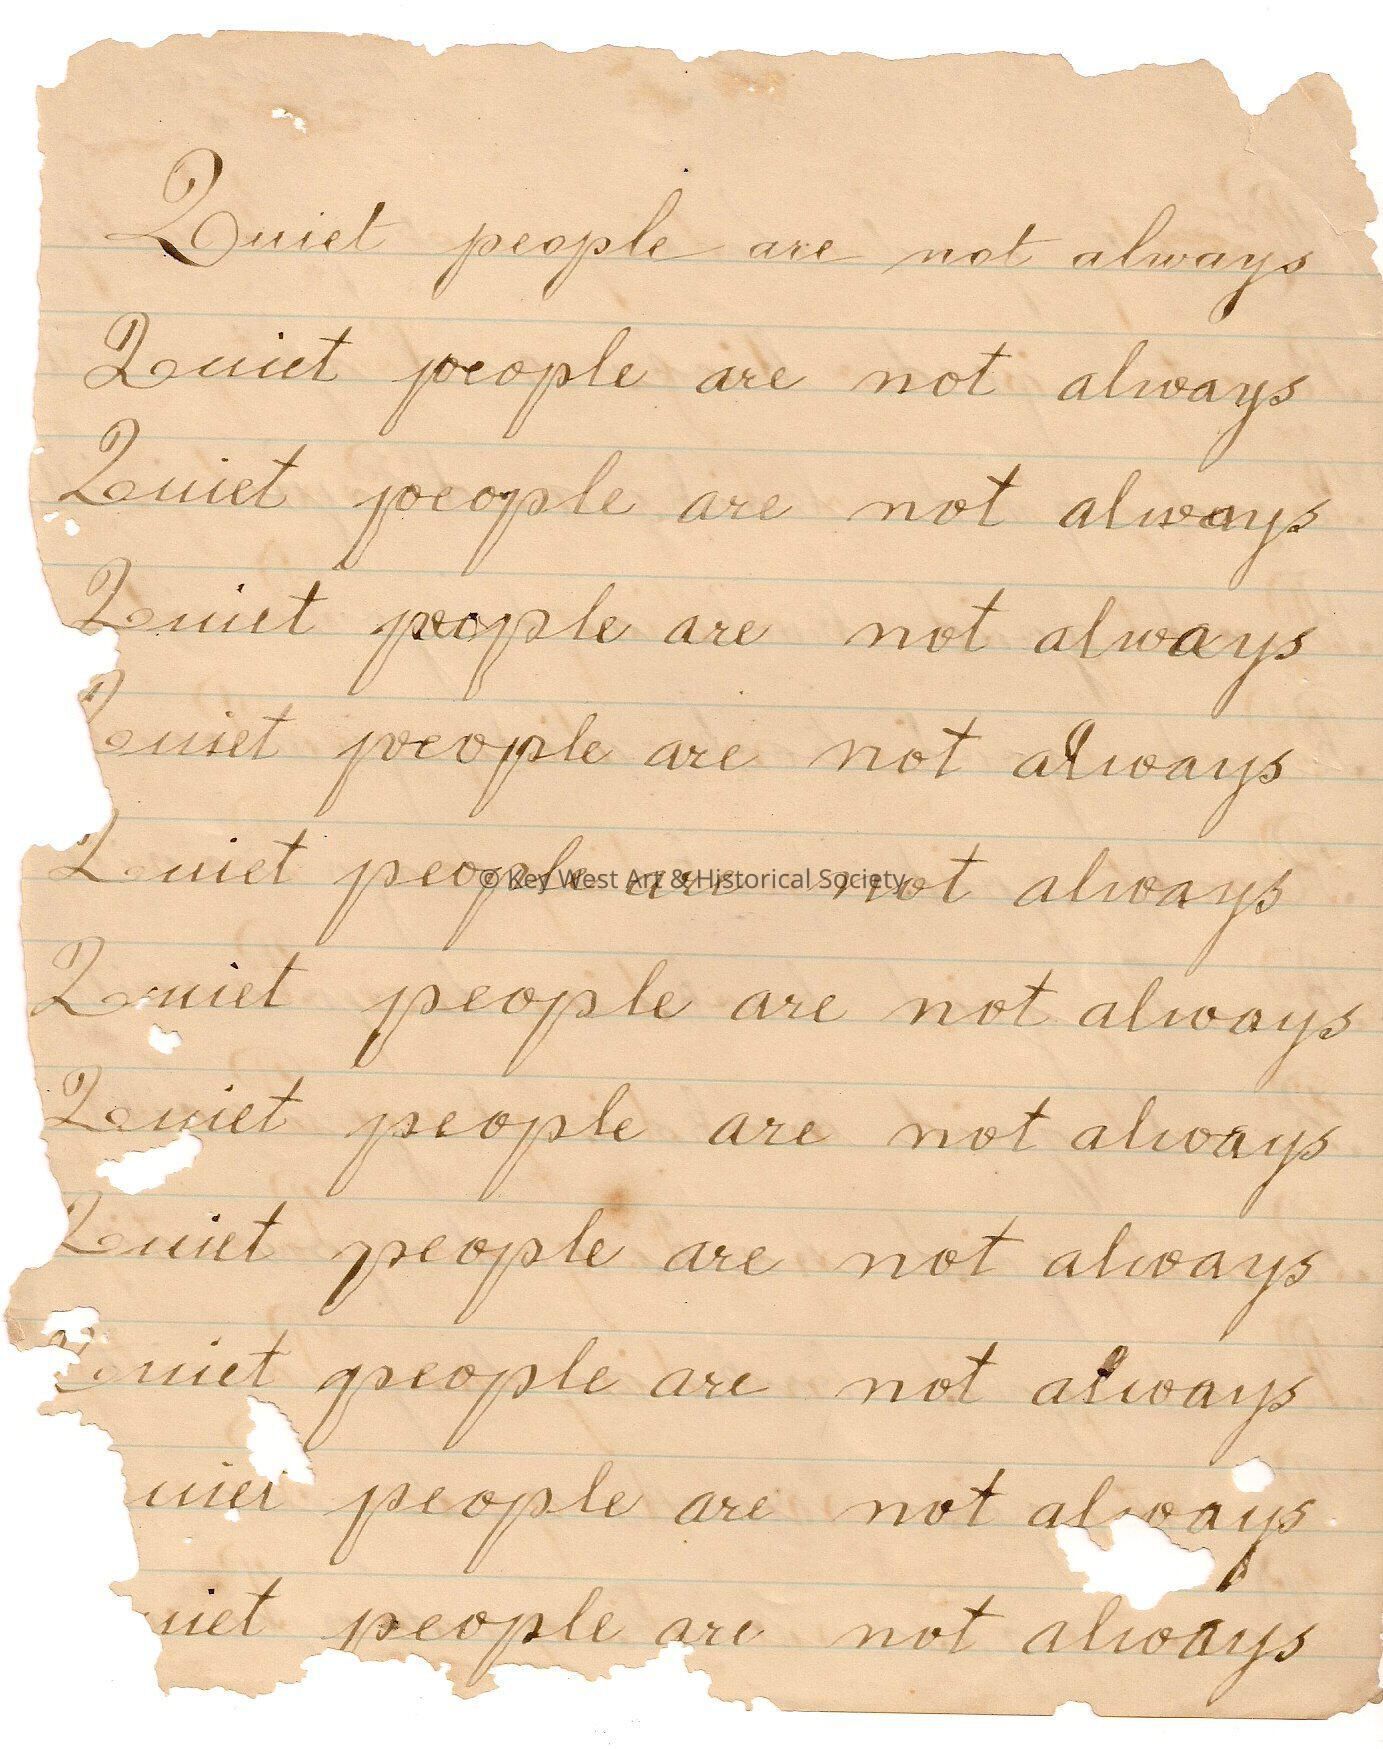 Quiet people are not always
Quiet people are not always
Quiet people are not always
Quiet people are not always
Quiet people are not always
Quiet people are not always
© Key West Art & Historical Society
Quiet people are not always
Quiet people are not always
Quiet people are not always
Quiet people are not always
uiet people are not always
uiet people are not always